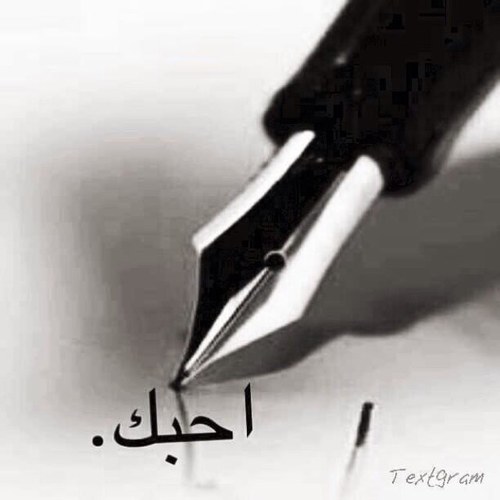 احبك.
Textgram